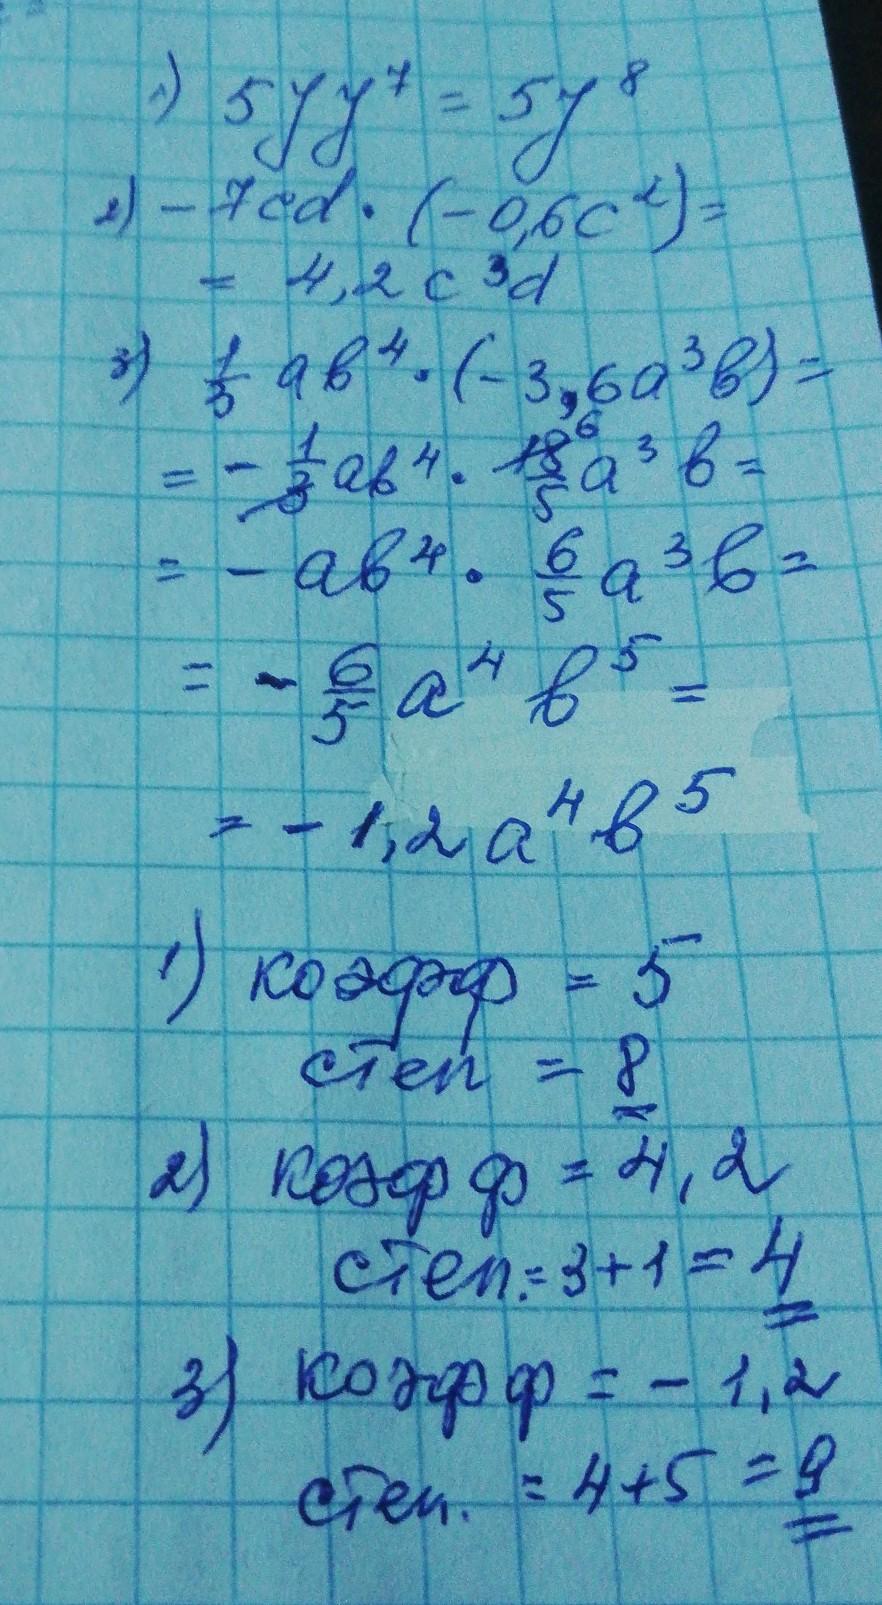 1) 5yy⁷ = 5y⁸
2) - 7cd · (-0,6c²) =
= 4,2c³d
3) 1/3 ab⁴ · (-3,6a³b) =
= - 1/3 ab⁴ · 18/5 6 a³b =
= - ab⁴ · 6/5 a³b =
= - 6/5 a⁴b⁵ =
= - 1,2a⁴b⁵
1) коэфф = 5
степ = 8
2) коэфф = 4,2
степ. = 3+1 = 4
3) коэфф = - 1,2
степ. = 4+5 = 9